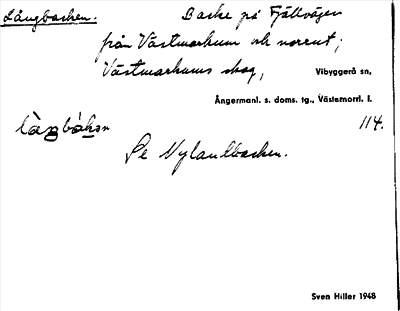 Långbacken. Backe på Fjällvägen
från Västmarkum och norrut;
Västmarkums skog, Vibyggerå sn,
Ångermanl. s. doms. tg., Västernorrl. l.
114.
Se Nylandbacken.
Sven Hiller 1948